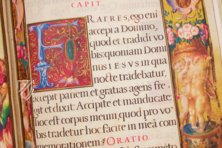 CAPIT.
FRATRES, ego eni
accepi a Domino,
quod et tradidi vo
bis: quoniam Domi
nus IESVS in qua
nocte tradebatur,
accepit panem et gratias agens fre
git et dixit: Accipite et manducate:
hoc est corpus meum, quod pro vo
bis tradetur: hoc facite in meã com
memorationem. ORATIO.